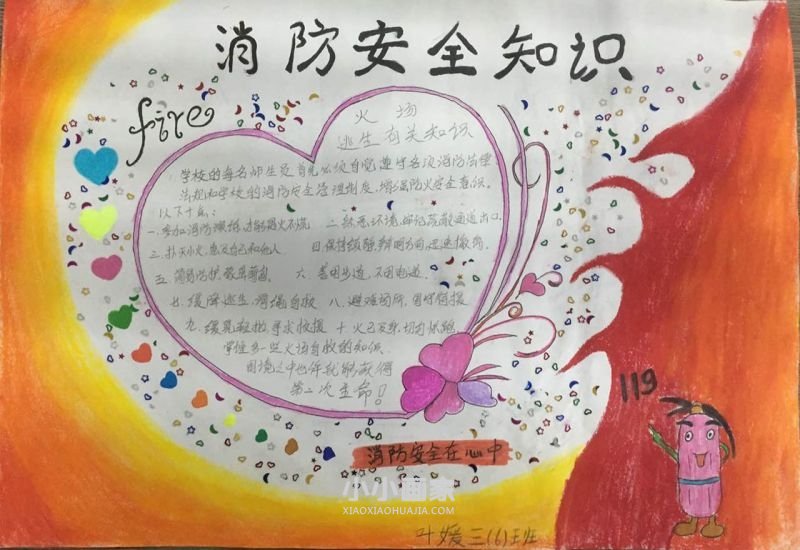 消防安全知识
fire
火场
逃生有关知识
学校的每名师生员首先必须自觉遵守各项消防法律
法规和学校的消防安全管理制度，增强防火安全意识。
以下十点：
一.参加消防演练，才能遇火不慌 二.熟悉环境，牢记疏散通道出口
三.扑灭小火，惠及自己和他人 四.保持镇静，辨明方向，迅速撤离
五.简易防护，蒙鼻匍匐 六.善用步道，不用电道.
七.缓降逃生，滑绳自救 八.避难场所，固守待援
九.缓晃轻抛，寻求救援 十.火已及身，切勿惊跑.
学位多一些火场自救的知识
困境之中也许就能获得
第二次生命！
119
消防安全在心中
小小画家
XIAOXIAOHUAJIA.COM
叶媛三(6)班